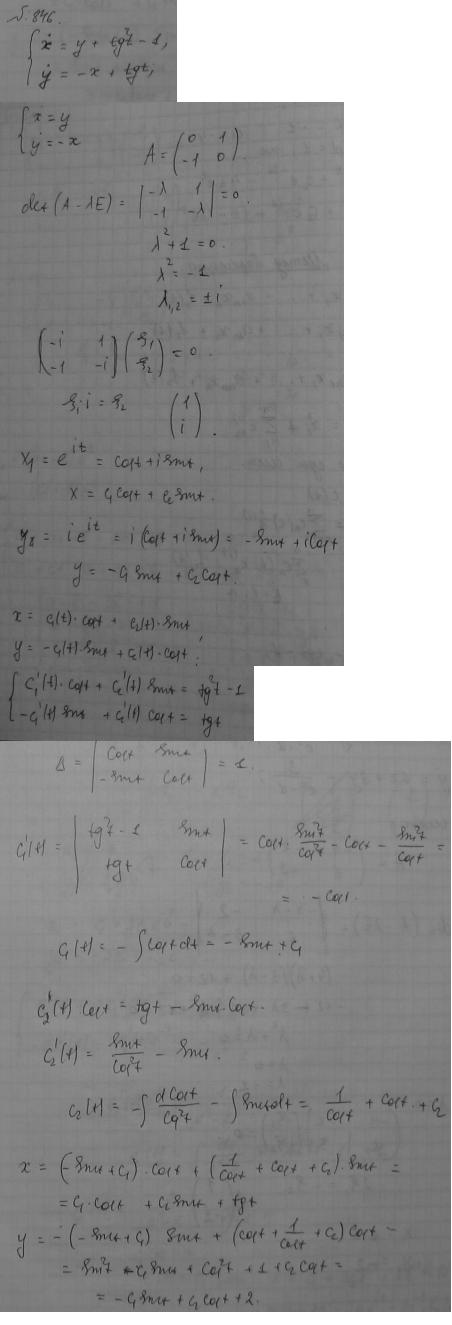 N. 846.
{ ẋ = y + tg²t - 1,
{ ẏ = -x + tgt,
{ ẋ = y
{ ẏ = -x
A = (0 1; -1 0).
det(A - λE) = |-λ 1; -1 -λ| = 0.
λ² + 1 = 0.
λ² = -1
λ₁,₂ = ±i
(-i 1; -1 -i)(ξ₁; ξ₂) = 0.
ξ₁·i = ξ₂ (1; i).
x₁ = e^{it} = cost + i sint,
x = c₁cost + c₂sint.
y₁ = i e^{it} = i(cost + i sint) = -sint + i cost
y = -c₁sint + c₂cost.
x = c₁(t)·cost + c₂(t)·sint
y = -c₁(t)·sint + c₂(t)·cost
{ c₁'(t)·cost + c₂'(t) sint = tg²t - 1
{ -c₁'(t) sint + c₂'(t) cost = tgt
Δ = |cost sint; -sint cost| = 1.
c₁'(t) = |tg²t - 1 sint; tgt cost| = cost · sin²t/cos²t - cost - sin²t/cost =
= -cost.
c₁(t) = -∫cost dt = -sint + c₁
c₂'(t) cost = tgt - sint·cost.
c₂'(t) = sint/cos²t - sint.
c₂(t) = -∫ dcost/cos²t - ∫sint dt = 1/cost + cost + c₂
x = (-sint + c₁)·cost + (1/cost + cost + c₂)·sint =
= c₁·cost + c₂sint + tgt
y = -(-sint + c₁) sint + (cost + 1/cost + c₂) cost =
= sin²t - c₁sint + cos²t + 1 + c₂cost =
= -c₁sint + c₂cost + 2.